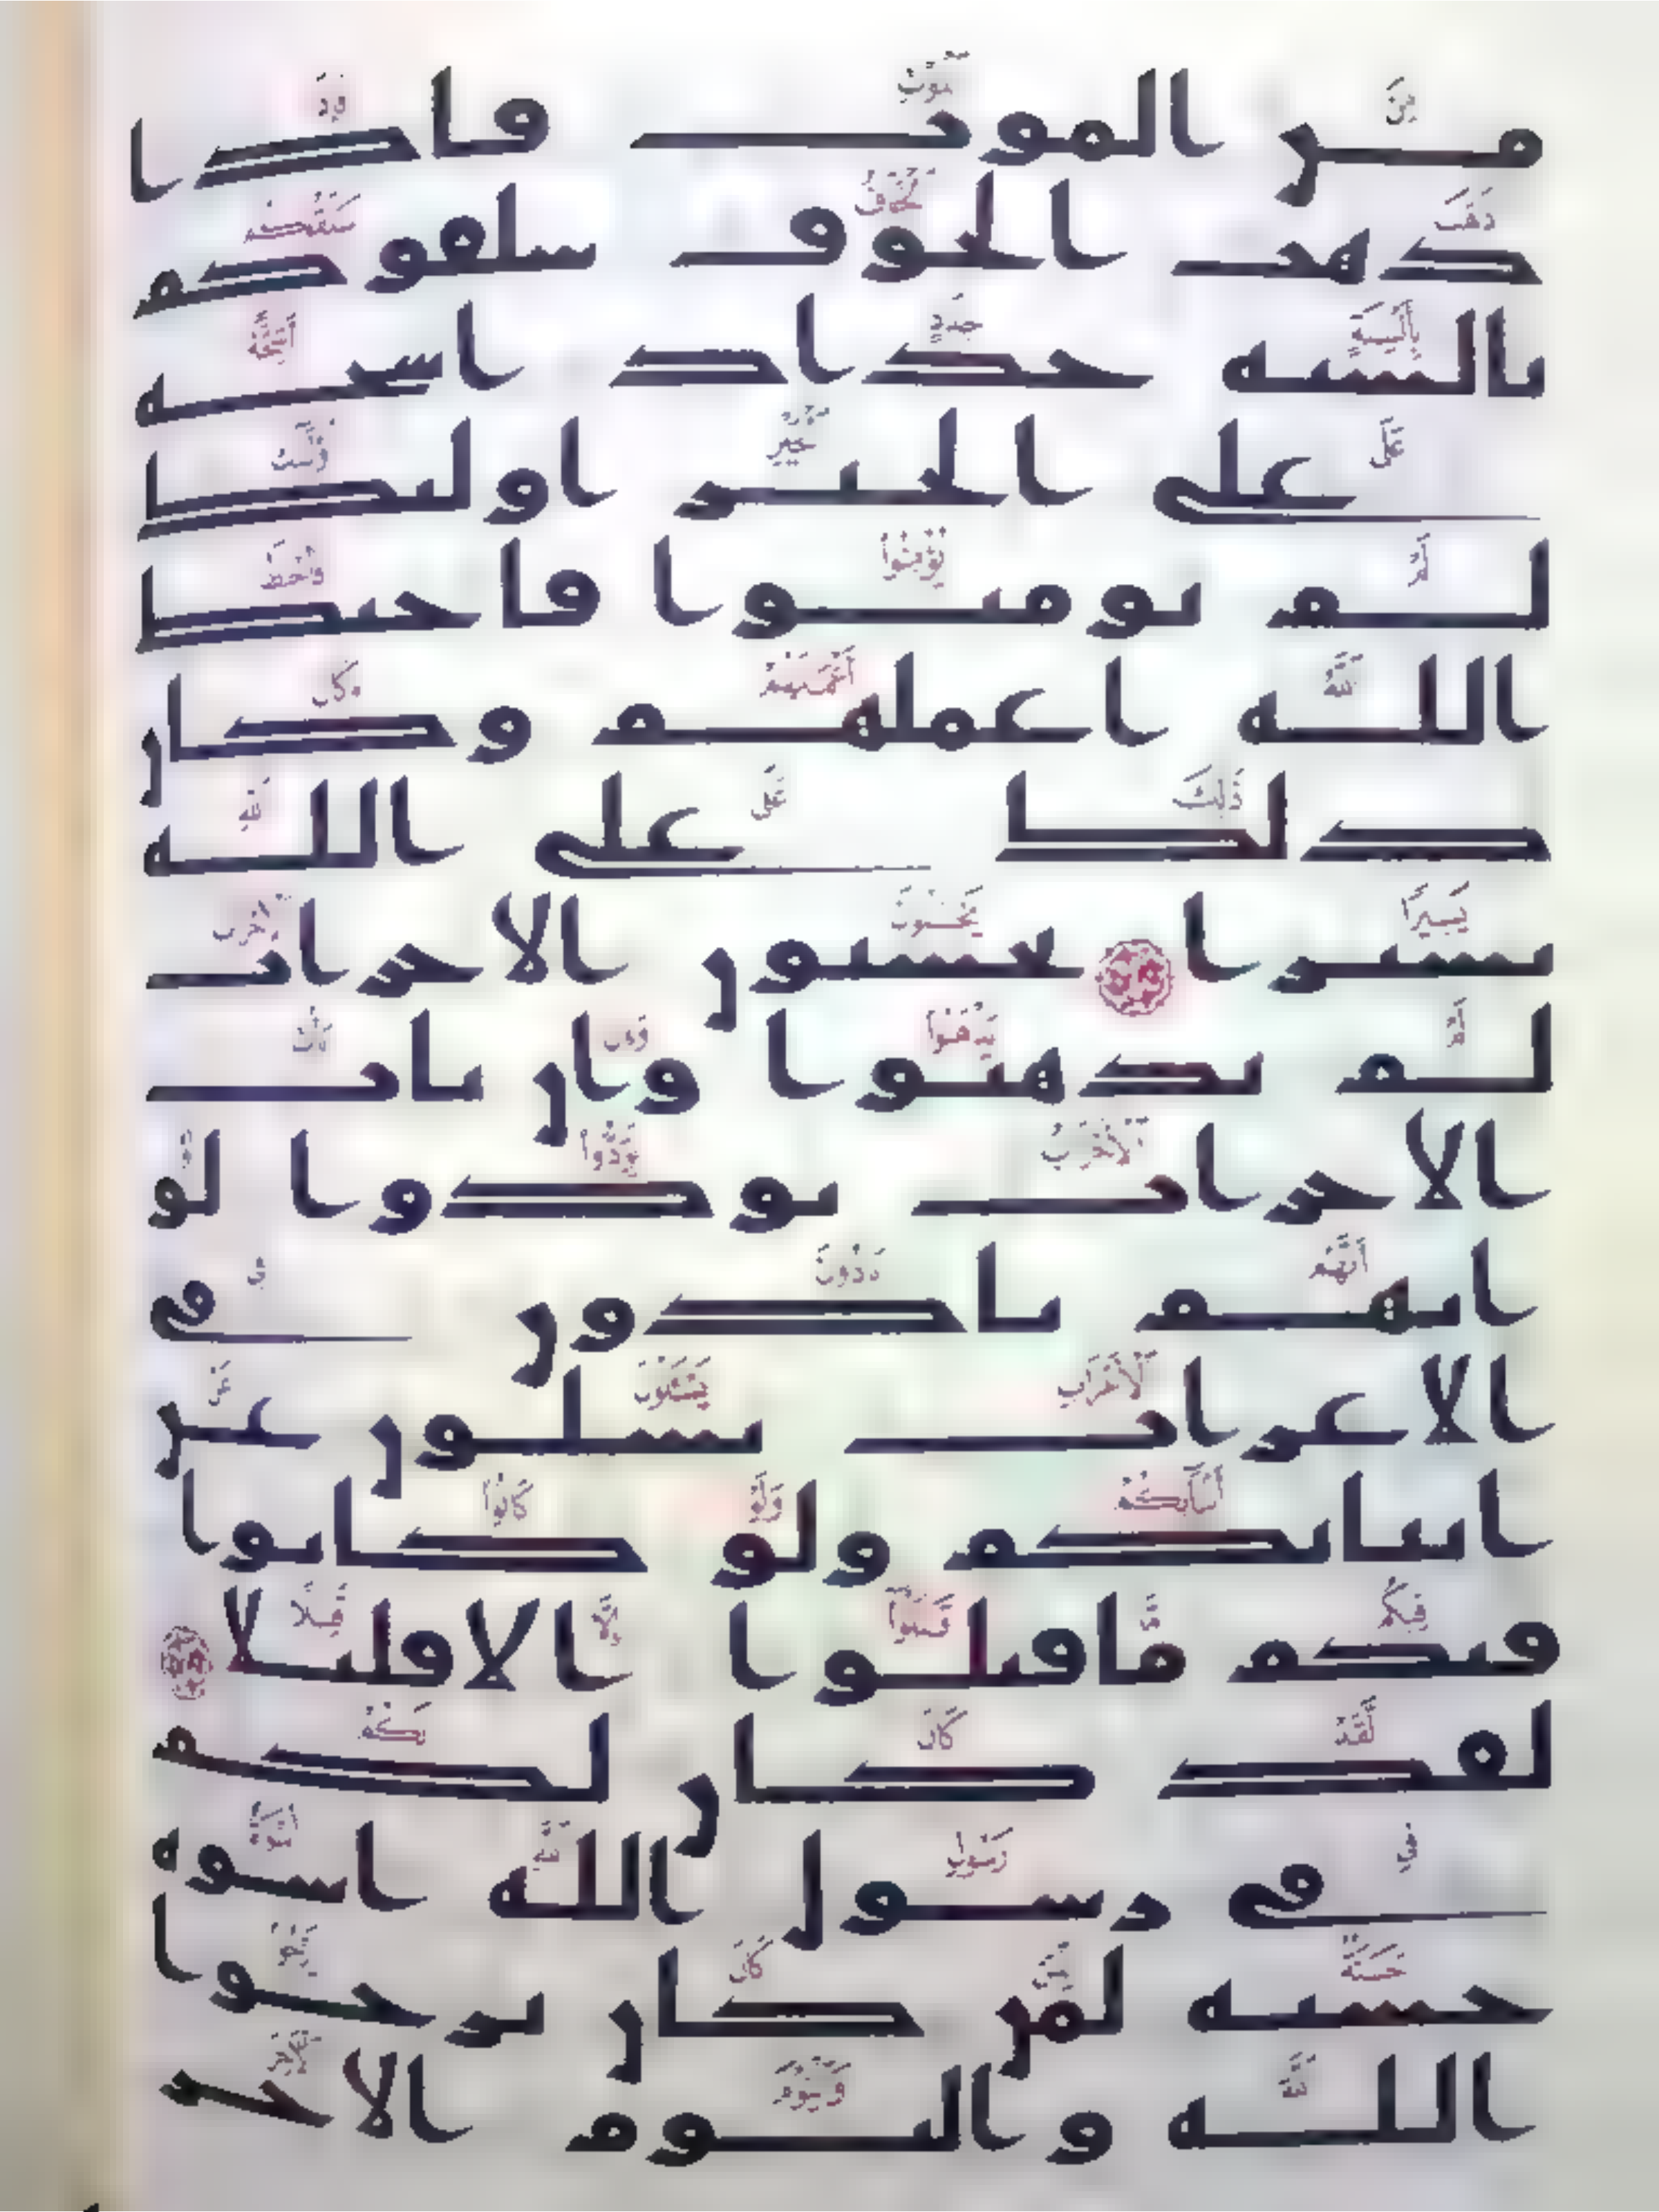 من الموت فاذا
ذهب الخوف سلقوكم
بالسنة حداد اشحة
على الخير اولئك
لم يومنوا فاحبط
الله اعملهم وكان
ذلك على الله
يسيرا يحسبون الاحزاب
لم يذهبوا وان يات
الاحزاب يودوا لو
انهم بادون في
الاعراب يسلون عن
انبائكم ولو كانوا
فيكم ما قتلوا الا قليلا
لقد كان لكم
في رسول الله اسوة
حسنة لمن كان يرجوا
الله واليوم الاخر